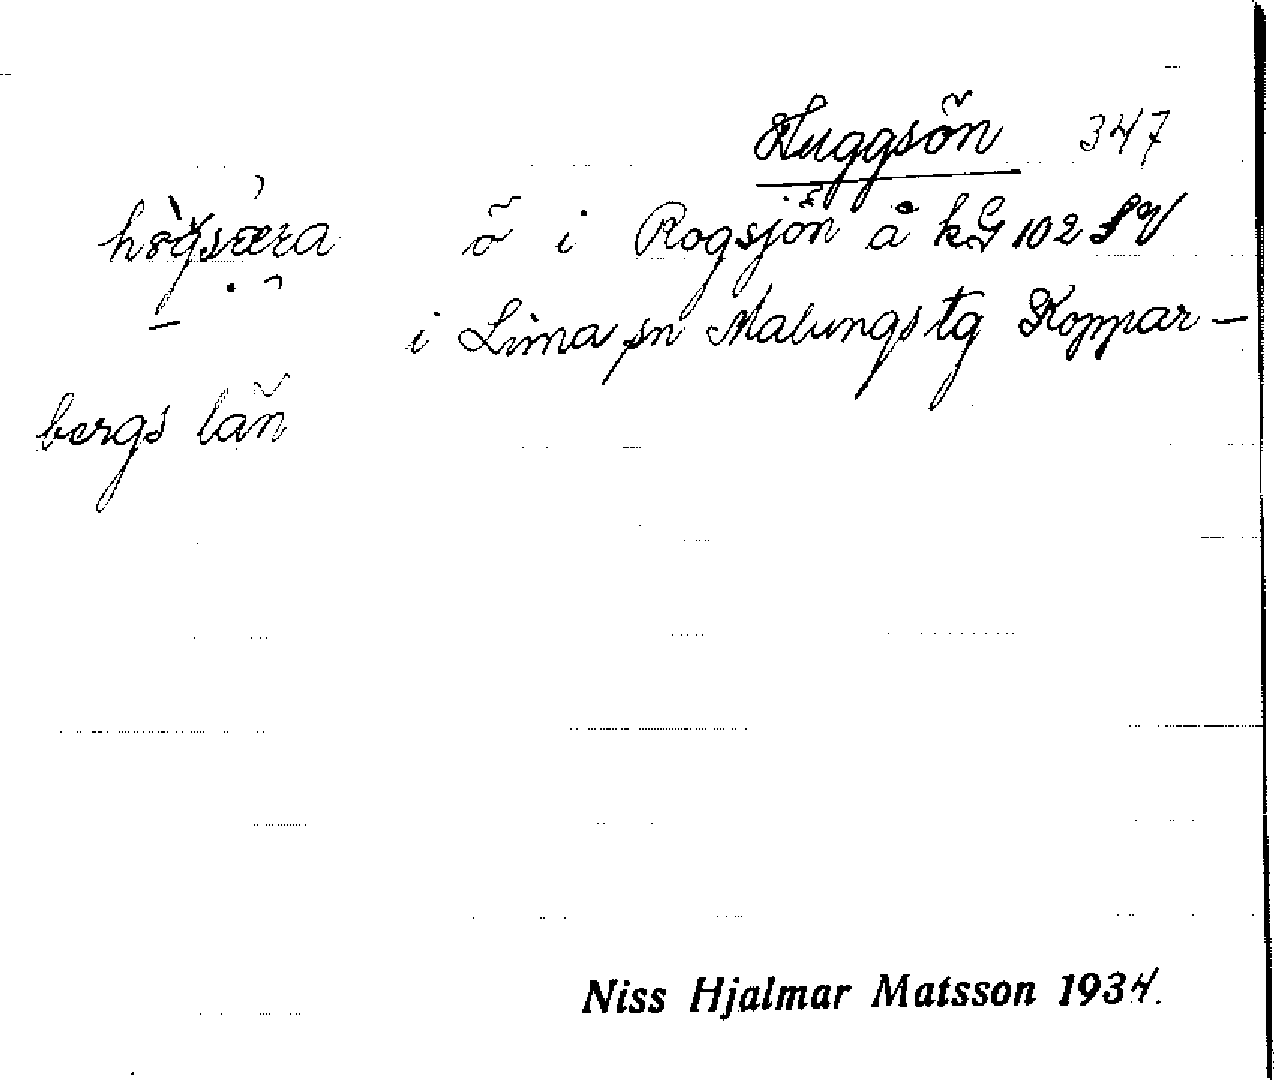 Huggsön 347
ö i Rogsjön å kG 102 SV
i Lima sn Malungs tg Koppar-
bergs län
Niss Hjalmar Matsson 1934.